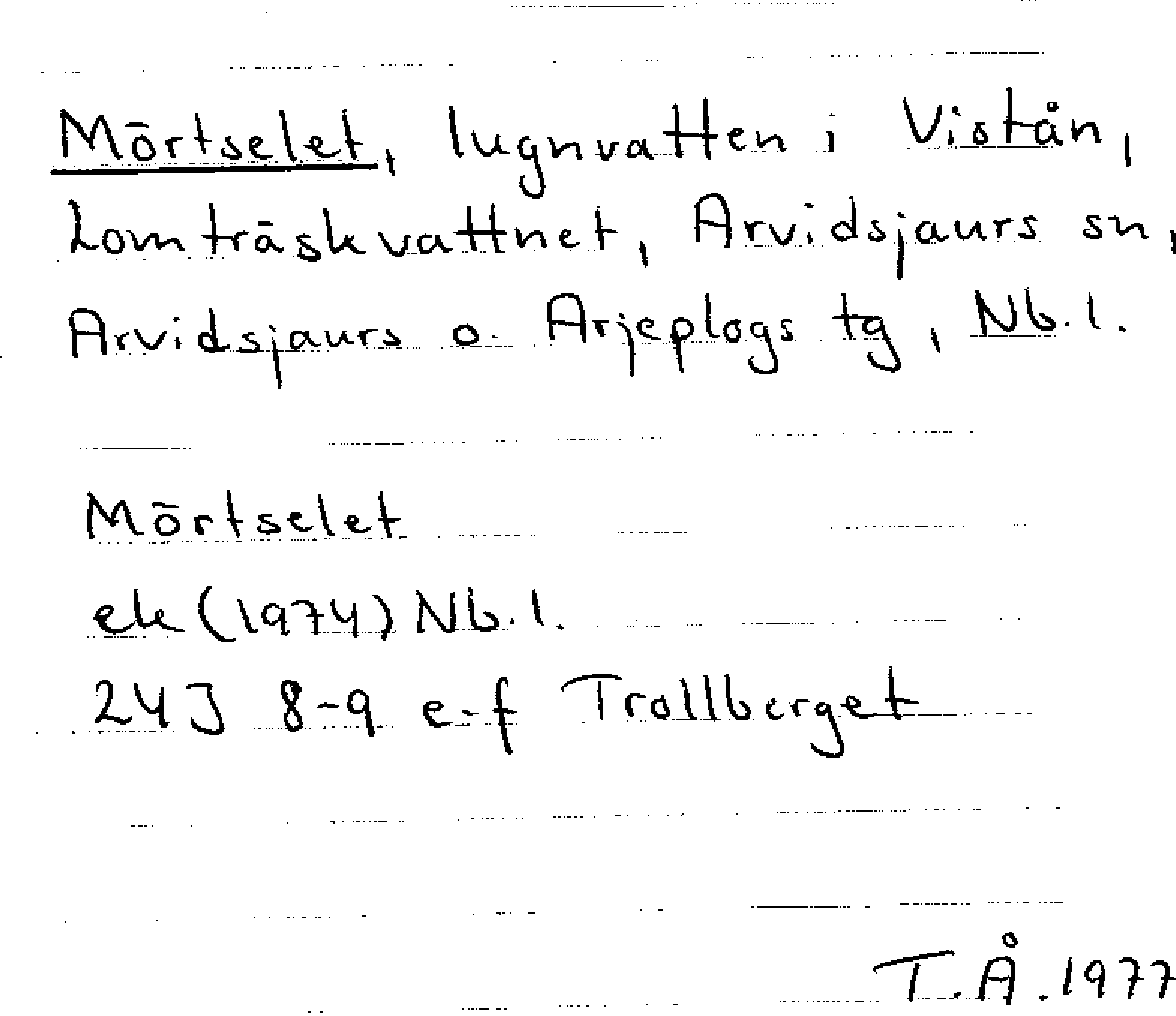 Mörtselet, lugnvatten i Vistån,
Lomträskvattnet, Arvidsjaurs sn,
Arvidsjaurs o. Arjeplogs tg, Nb.l.
Mörtselet
ek (1974) Nb.l.
24J 8-9 e-f Trollberget
T.Å.1977